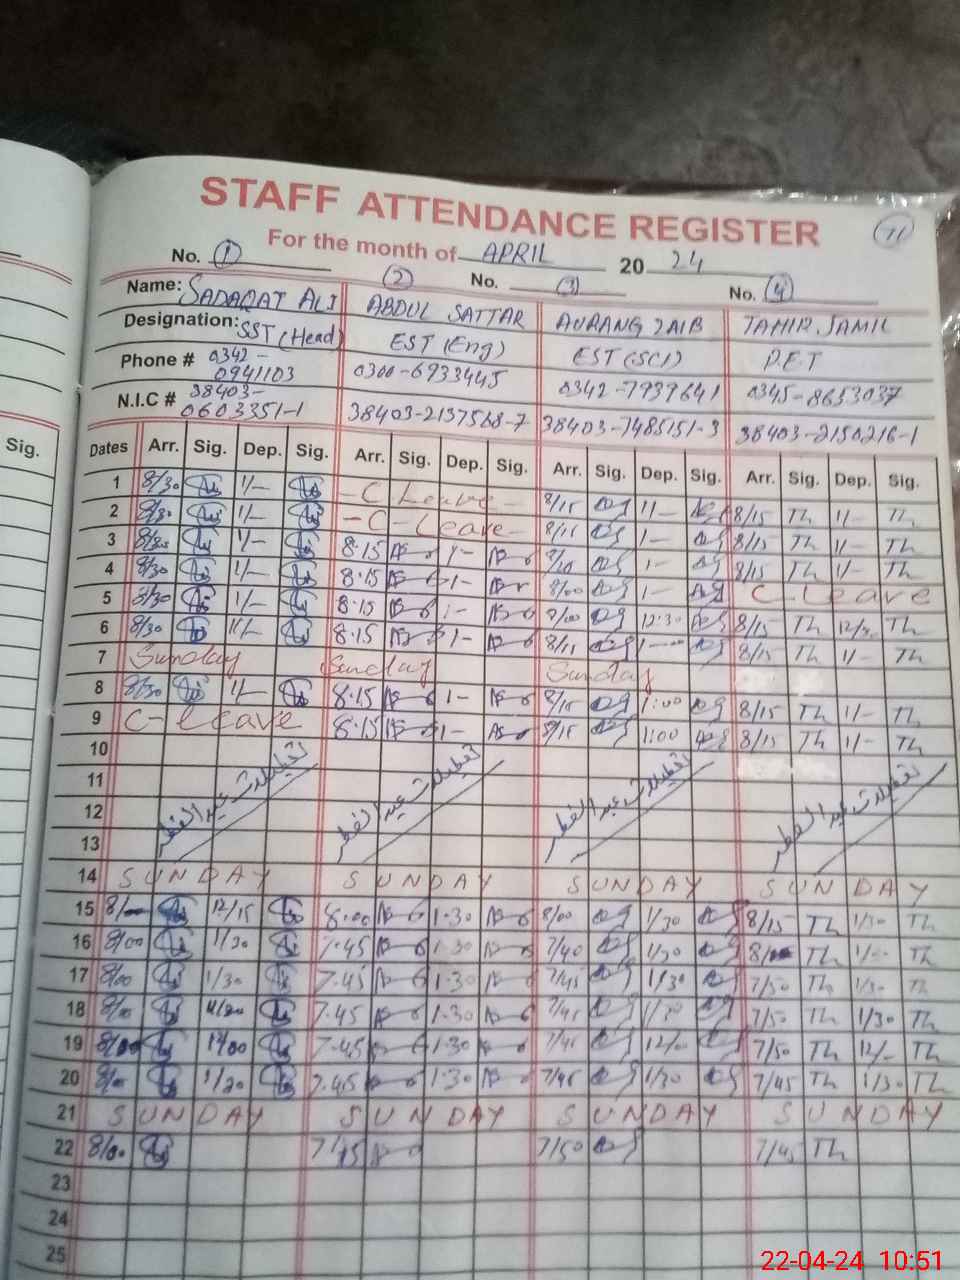 STAFF ATTENDANCE REGISTER 71
For the month of APRIL 2024
No. 1 2 No. 3 No. 4
Name: SADAQAT ALI ABDUL SATTAR AURANG ZAIB TAHIR JAMIL
Designation: SST (Head) EST (Eng) EST (SCI) P.E.T
Phone # 0342-0941103 0300-6933445 0342-7939641 0345-8653037
N.I.C # 38403-0603351-1 38403-2137568-7 38403-7485151-3 38403-2150216-1
Sig.
Dates Arr. Sig. Dep. Sig. Arr. Sig. Dep. Sig. Arr. Sig. Dep. Sig. Arr. Sig. Dep. Sig.
1 8/30 1/- - C Leave - 8/15 1/- 8/15 Th 1/- Th
2 8/30 1/- - C - Leave - 8/15 1- 8/15 Th 1/- Th
3 8/30 1/- 8.15 1- 1- 8/15 Th 1/- Th
4 8/30 1/- 8.15 1- 8/00 1- C - Leave
5 8/30 1/- 8.15 1- 8/00 12:30 8/15 Th Th
6 8/30 8.15 1- 8/15 Th 1/- Th
7 Sunday Sunday Sunday
8 8/30 1/- 8.15 1- 8/15 1:00 8/15 Th 1/- Th
9 C - leave 8.15 1- 8/15 1:00 8/15 Th 1/- Th
10
11 تعطیلات عید الفطر تعطیلات عید الفطر تعطیلات عید الفطر تعطیلات عید الفطر
12
13
14 SUNDAY SUNDAY SUNDAY SUNDAY
15 12/15 8.00 1.30 8/00 1/30 8/15 Th 1/30 Th
16 8/00 1/30 7.45 1.30 7/40 1/30 Th Th
17 8/00 1/30 7.45 1.30 7/45 1/30 7/50 Th 1/30 Th
18 7.45 1.30 7/45 7/50 Th 1/30 Th
19 12/00 7.45 1.30 7/45 12/- 7/50 Th 12/- Th
20 7.45 1.30 7/45 1/30 7/45 Th 1/30 Th
21 SUNDAY SUNDAY SUNDAY SUNDAY
22 8/00 7/45 7/50 7/45 Th
23
24
25
22-04-24 10:51